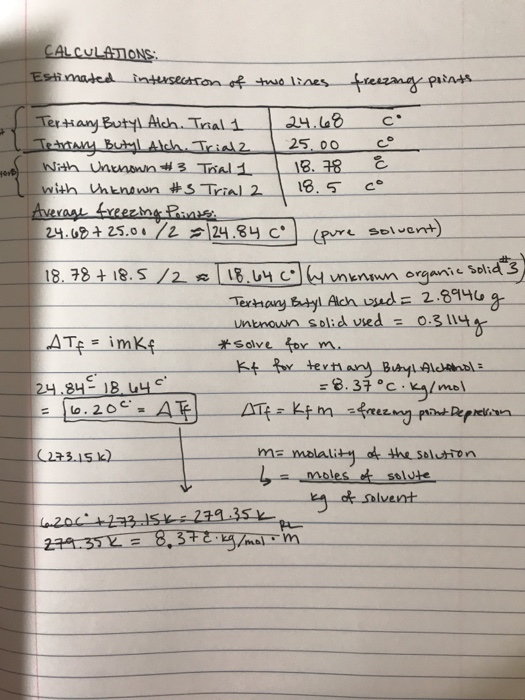 CALCULATIONS:
Estimated intersection of two lines freezing points
Tertiary Butyl Alch. Trial 1 24.68 C°
Tertiary Butyl Alch. Trial 2 25.00 C°
With Unknown #3 Trial 1 18.78 C°
With Unknown #3 Trial 2 18.5 C°
Average freezing Points:
24.68 + 25.00 /2 ≈ 24.84 C° (pure solvent)
18.78 + 18.5 /2 ≈ 18.64 C° (w/ unknown organic solid #3)
Tertiary Butyl Alch used = 2.8946 g
unknown solid used = 0.3114 g
ΔTf = imKf * solve for m.
Kf for tertiary Butyl Alchohol =
24.84 C° - 18.64 C° = 8.37 °C · kg/mol
= 6.20 C° = ΔTf ΔTf = Kfm = freezing point Depression
(273.15 K) m = molality of the solution
↳ = moles of solute
kg of solvent
6.20 C° + 273.15 K = 279.35 K
279.35 K = 8.37 C° · kg/mol · m